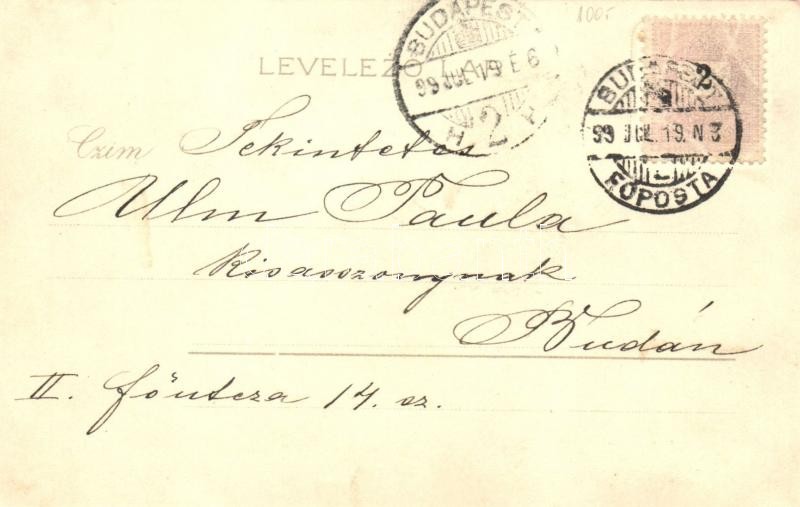 100.-
LEVELEZŐ LAP
BUDAPEST
99 JUL 19 É 6
H 2
2
BUDAPEST
99 JUL. 19. N 3
FŐPOSTA
Czim Tekintetes
Ulm Paula
Kisasszonynak
Budán
II. főutcza 14. sz.